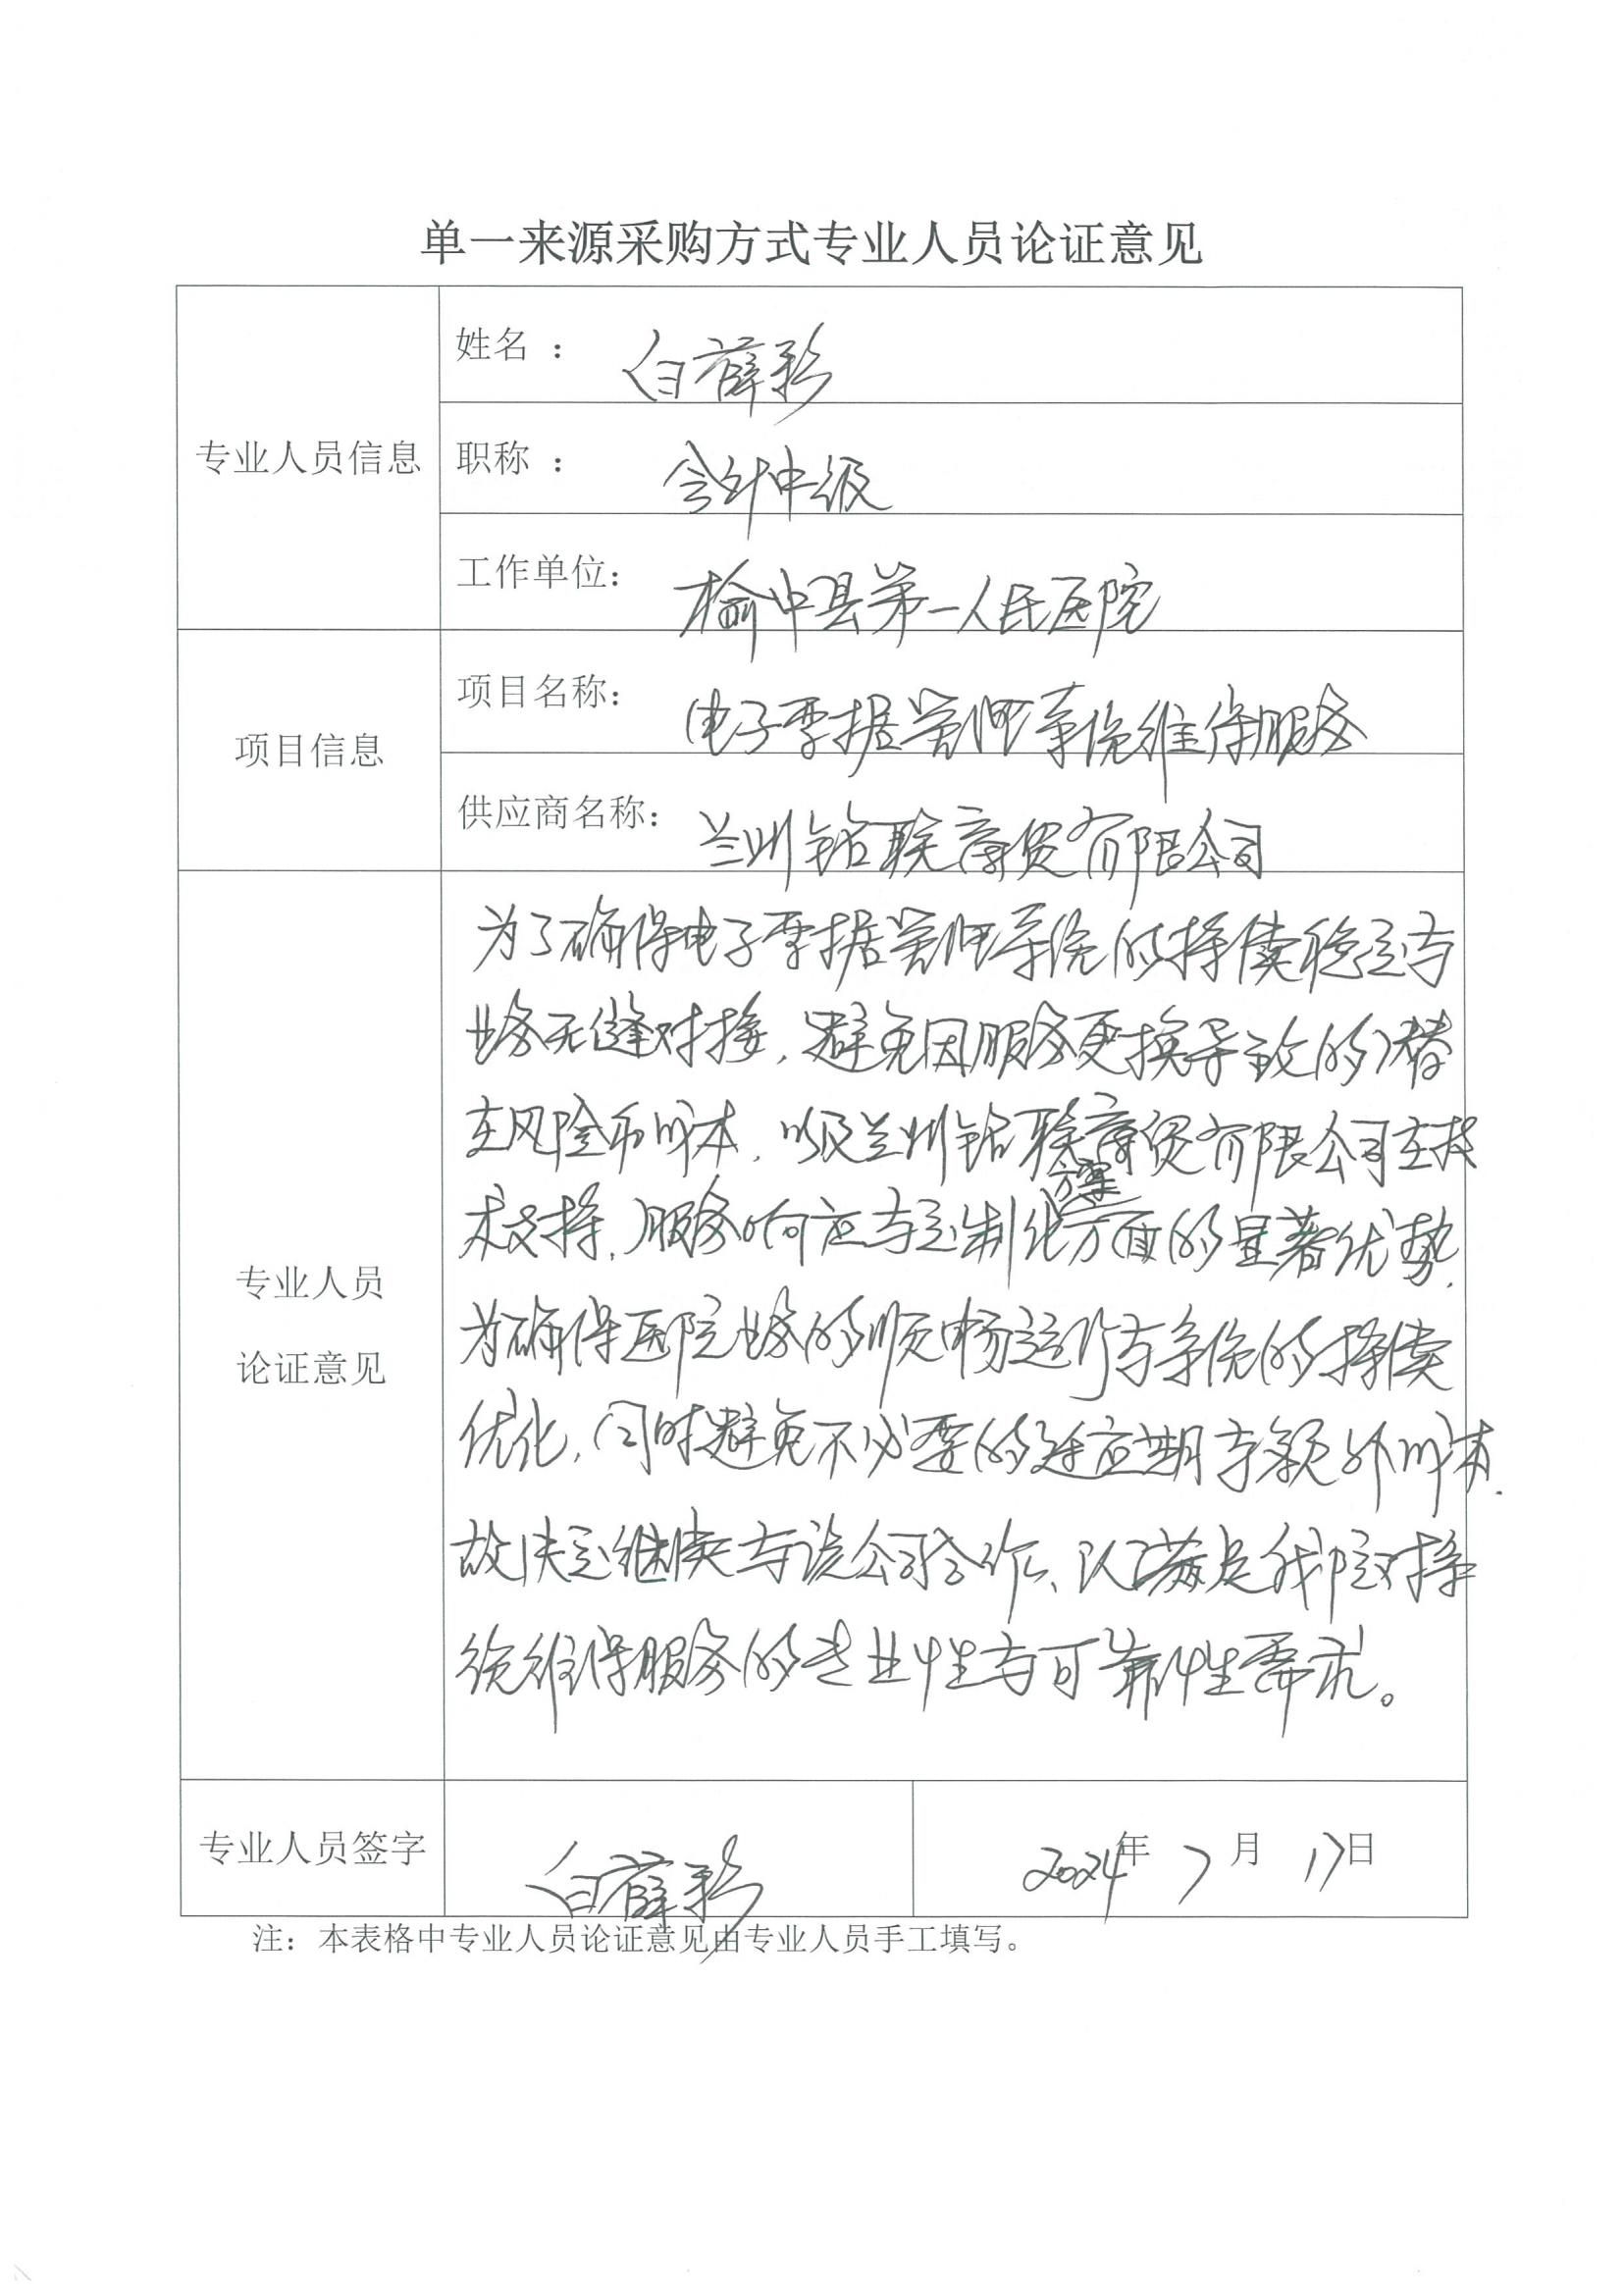 单一来源采购方式专业人员论证意见
专业人员信息
姓名 : 白薛彩
职称 : 会计中级
工作单位: 榆中县第一人民医院
项目信息
项目名称: 电子票据管理系统维保服务
供应商名称: 兰州铭联商贸有限公司
专业人员
论证意见
为了确保电子票据管理系统的持续稳定与
业务无缝对接，避免因服务更换导致的潜
在风险和成本，以及兰州铭联商贸有限公司在技
方案
术支持，服务响应与定制化方面的显著优势，
为确保医院业务的顺畅运行与系统的持续
优化，同时避免不必要的适应期与额外成本，
故决定继续与该公司合作、以满足我院对系
统维保服务的专业性与可靠性需求。
专业人员签字
白薛彩
2024年 7 月 17日
注：本表格中专业人员论证意见由专业人员手工填写。